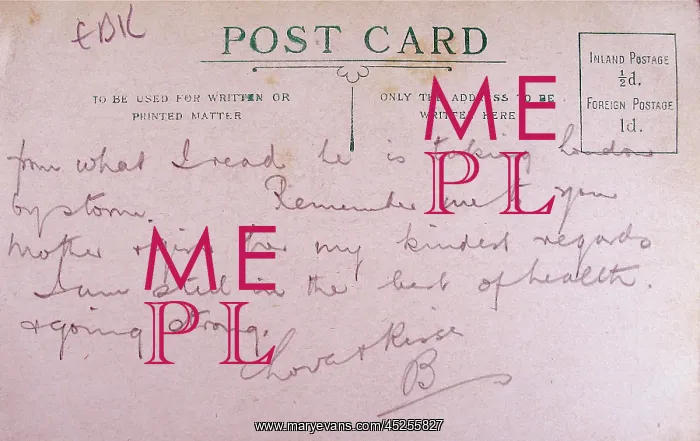 EBK
POST CARD
TO BE USED FOR WRITTEN OR
PRINTED MATTER
ONLY THE ADDRESS TO BE
WRITTEN HERE
INLAND POSTAGE
½d.
FOREIGN POSTAGE
1d.
from what I read he is taking London
by storm. Remember me to your
mother & give her my kindest regards
I am still in the best of health.
& going strong.
Love & Kisses
B
ME
PL
ME
PL
www.maryevans.com/45255827